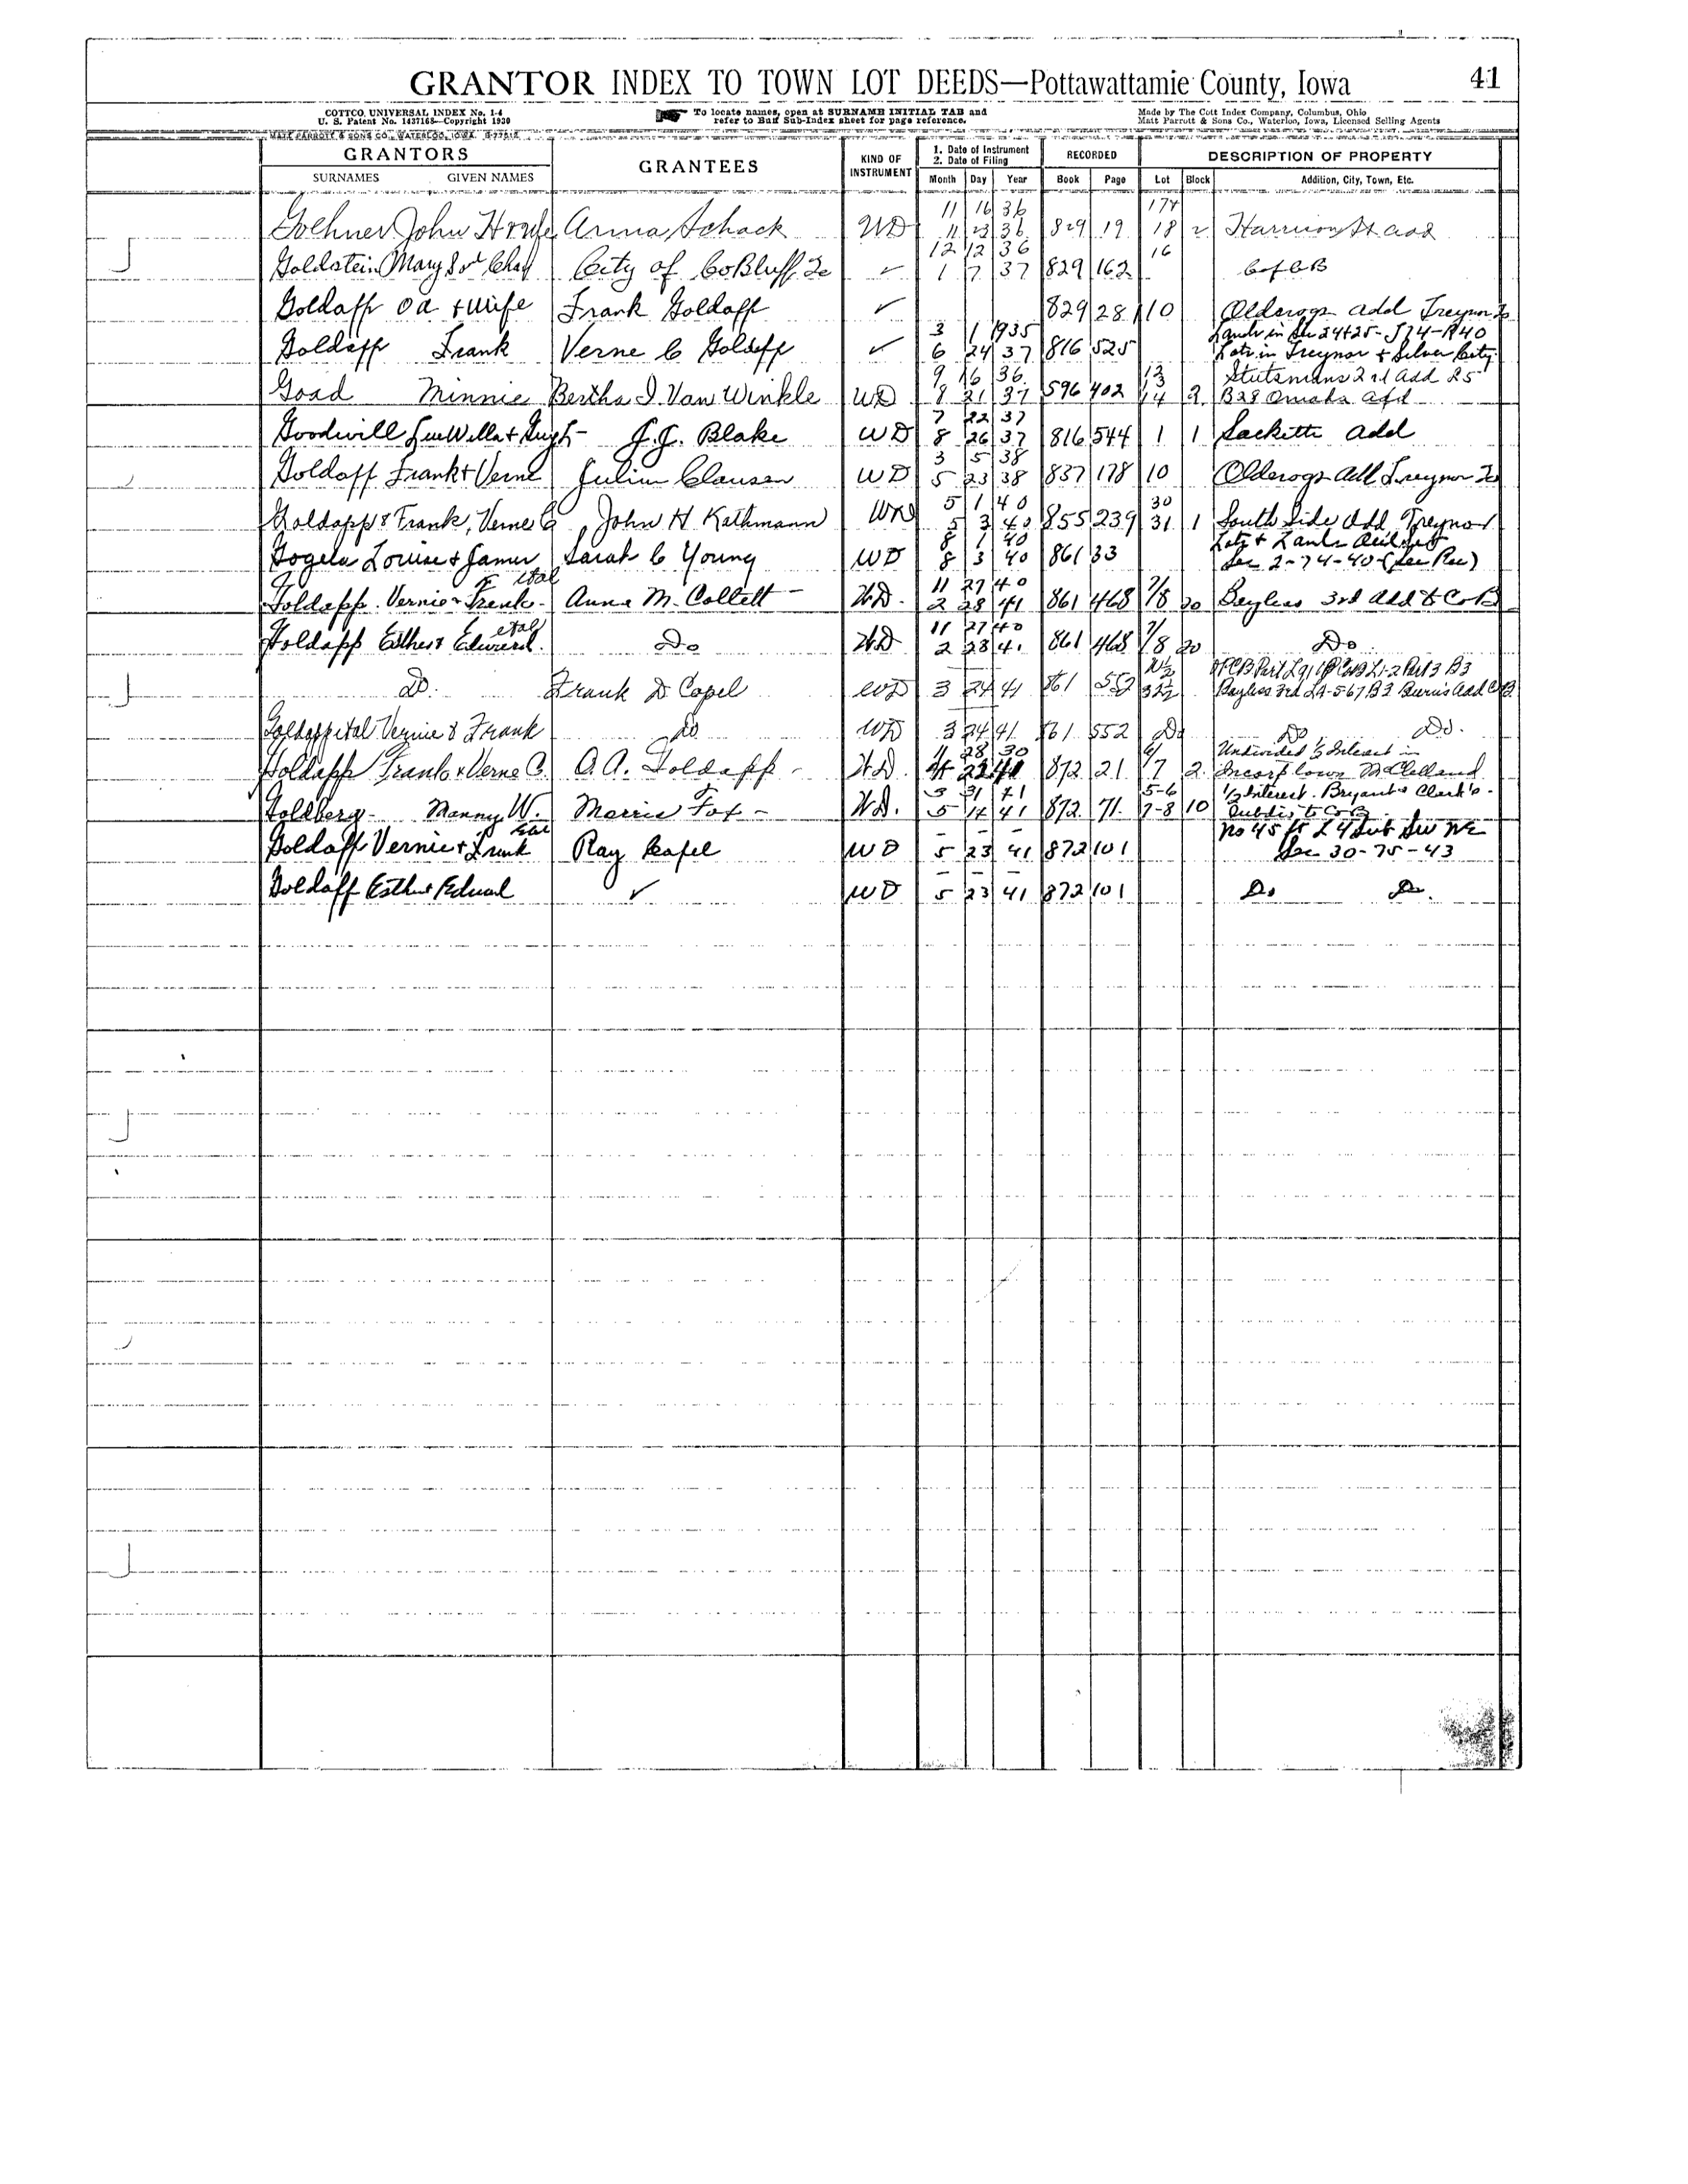 GRANTOR INDEX TO TOWN LOT DEEDS—Pottawattamie County, Iowa 41
COTTCO UNIVERSAL INDEX No. 1-4
U. S. Patent No. 1437168—Copyright 1930
To locate names, open at SURNAME INITIAL TAB and
refer to Buff Sub-Index sheet for page reference.
Made by The Cott Index Company, Columbus, Ohio
Matt Parrott & Sons Co., Waterloo, Iowa, Licensed Selling Agents
MATT PARROTT & SONS CO., WATERLOO, IOWA
GRANTORS GRANTEES KIND OF INSTRUMENT 1. Date of Instrument 2. Date of Filing RECORDED DESCRIPTION OF PROPERTY
SURNAMES GIVEN NAMES Month Day Year Book Page Lot Block Addition, City, Town, Etc.
11 16 36 17
Goehner John H Anna Schack WD 11 23 36 829 19 18 2 Harrison St add
12 12 36 16
Goldstein Mary City of Co Bluffs ✓ 1 7 37 829 162 C of C B
Goldaff O A + wife Frank Goldaff ✓ 829 281 10 Olderogs add Treynor
3 1 1935 Lands in Sec 24+25-
Goldaff Frank Verne C Goldaff ✓ 6 24 37 816 525 Lots in Treynor + Silver City
9 16 36 13 Stutsmans 2nd Add
Goad Minnie Bertha I. Van Winkle WD 8 21 37 596 402 14 9 B28 Omaha add
7 22 37
Goodwill + Hugh J.J. Blake WD 8 26 37 816 544 1 1 Sacketts add
3 5 38
Goldaff Frank + Verne Clausen WD 5 23 38 837 178 10 Olderogs Add Treynor
5 1 40 30
Goldapp & Frank, Verne C John H Kathmann WD 5 3 40 855 239 31 1 South Side Add Treynor
8 1 40 Lots + Lands
Gogela Louise + James Sarah C Young WD 8 3 40 861 33 Sec 2-74-40-(see Rec)
etal 11 27 40
Goldapp Vernie & Frank Anna M. Collett WD. 2 28 41 861 468 7/8 20 Bayliss 3rd Add to Co B
etal 11 27 40
Goldapp Esther & Edward. Do WD 2 28 41 861 468 7/8 20 Do
Do. Frank D Capel WD 3 24 41 861 552 Bayliss 3rd L4-5-6 7 B3 Burn's Add C B
Goldapp etal Vernie & Frank Do WD 3 24 41 861 552 Do Do Do.
11 28 30 6/ Undivided ½ Interest in
Goldapp Frank & Verne C. O.A. Goldapp WD. 872 21 7 2 Incorp town McClelland
3 31 41 5-6 ½ Interest. Bryant & Clark's
Goldberg Manny W. Morris Fox WD. 5 14 41 872 71 7-8 10 Subdiv to Co B
No 45 ft L 4 Sub SW NE
Goldaff Vernie + Frank Ray Capel WD 5 23 41 872 101 Sec 30-75-43
Goldaff Esther Edward ✓ WD 5 23 41 872 101 Do Do.